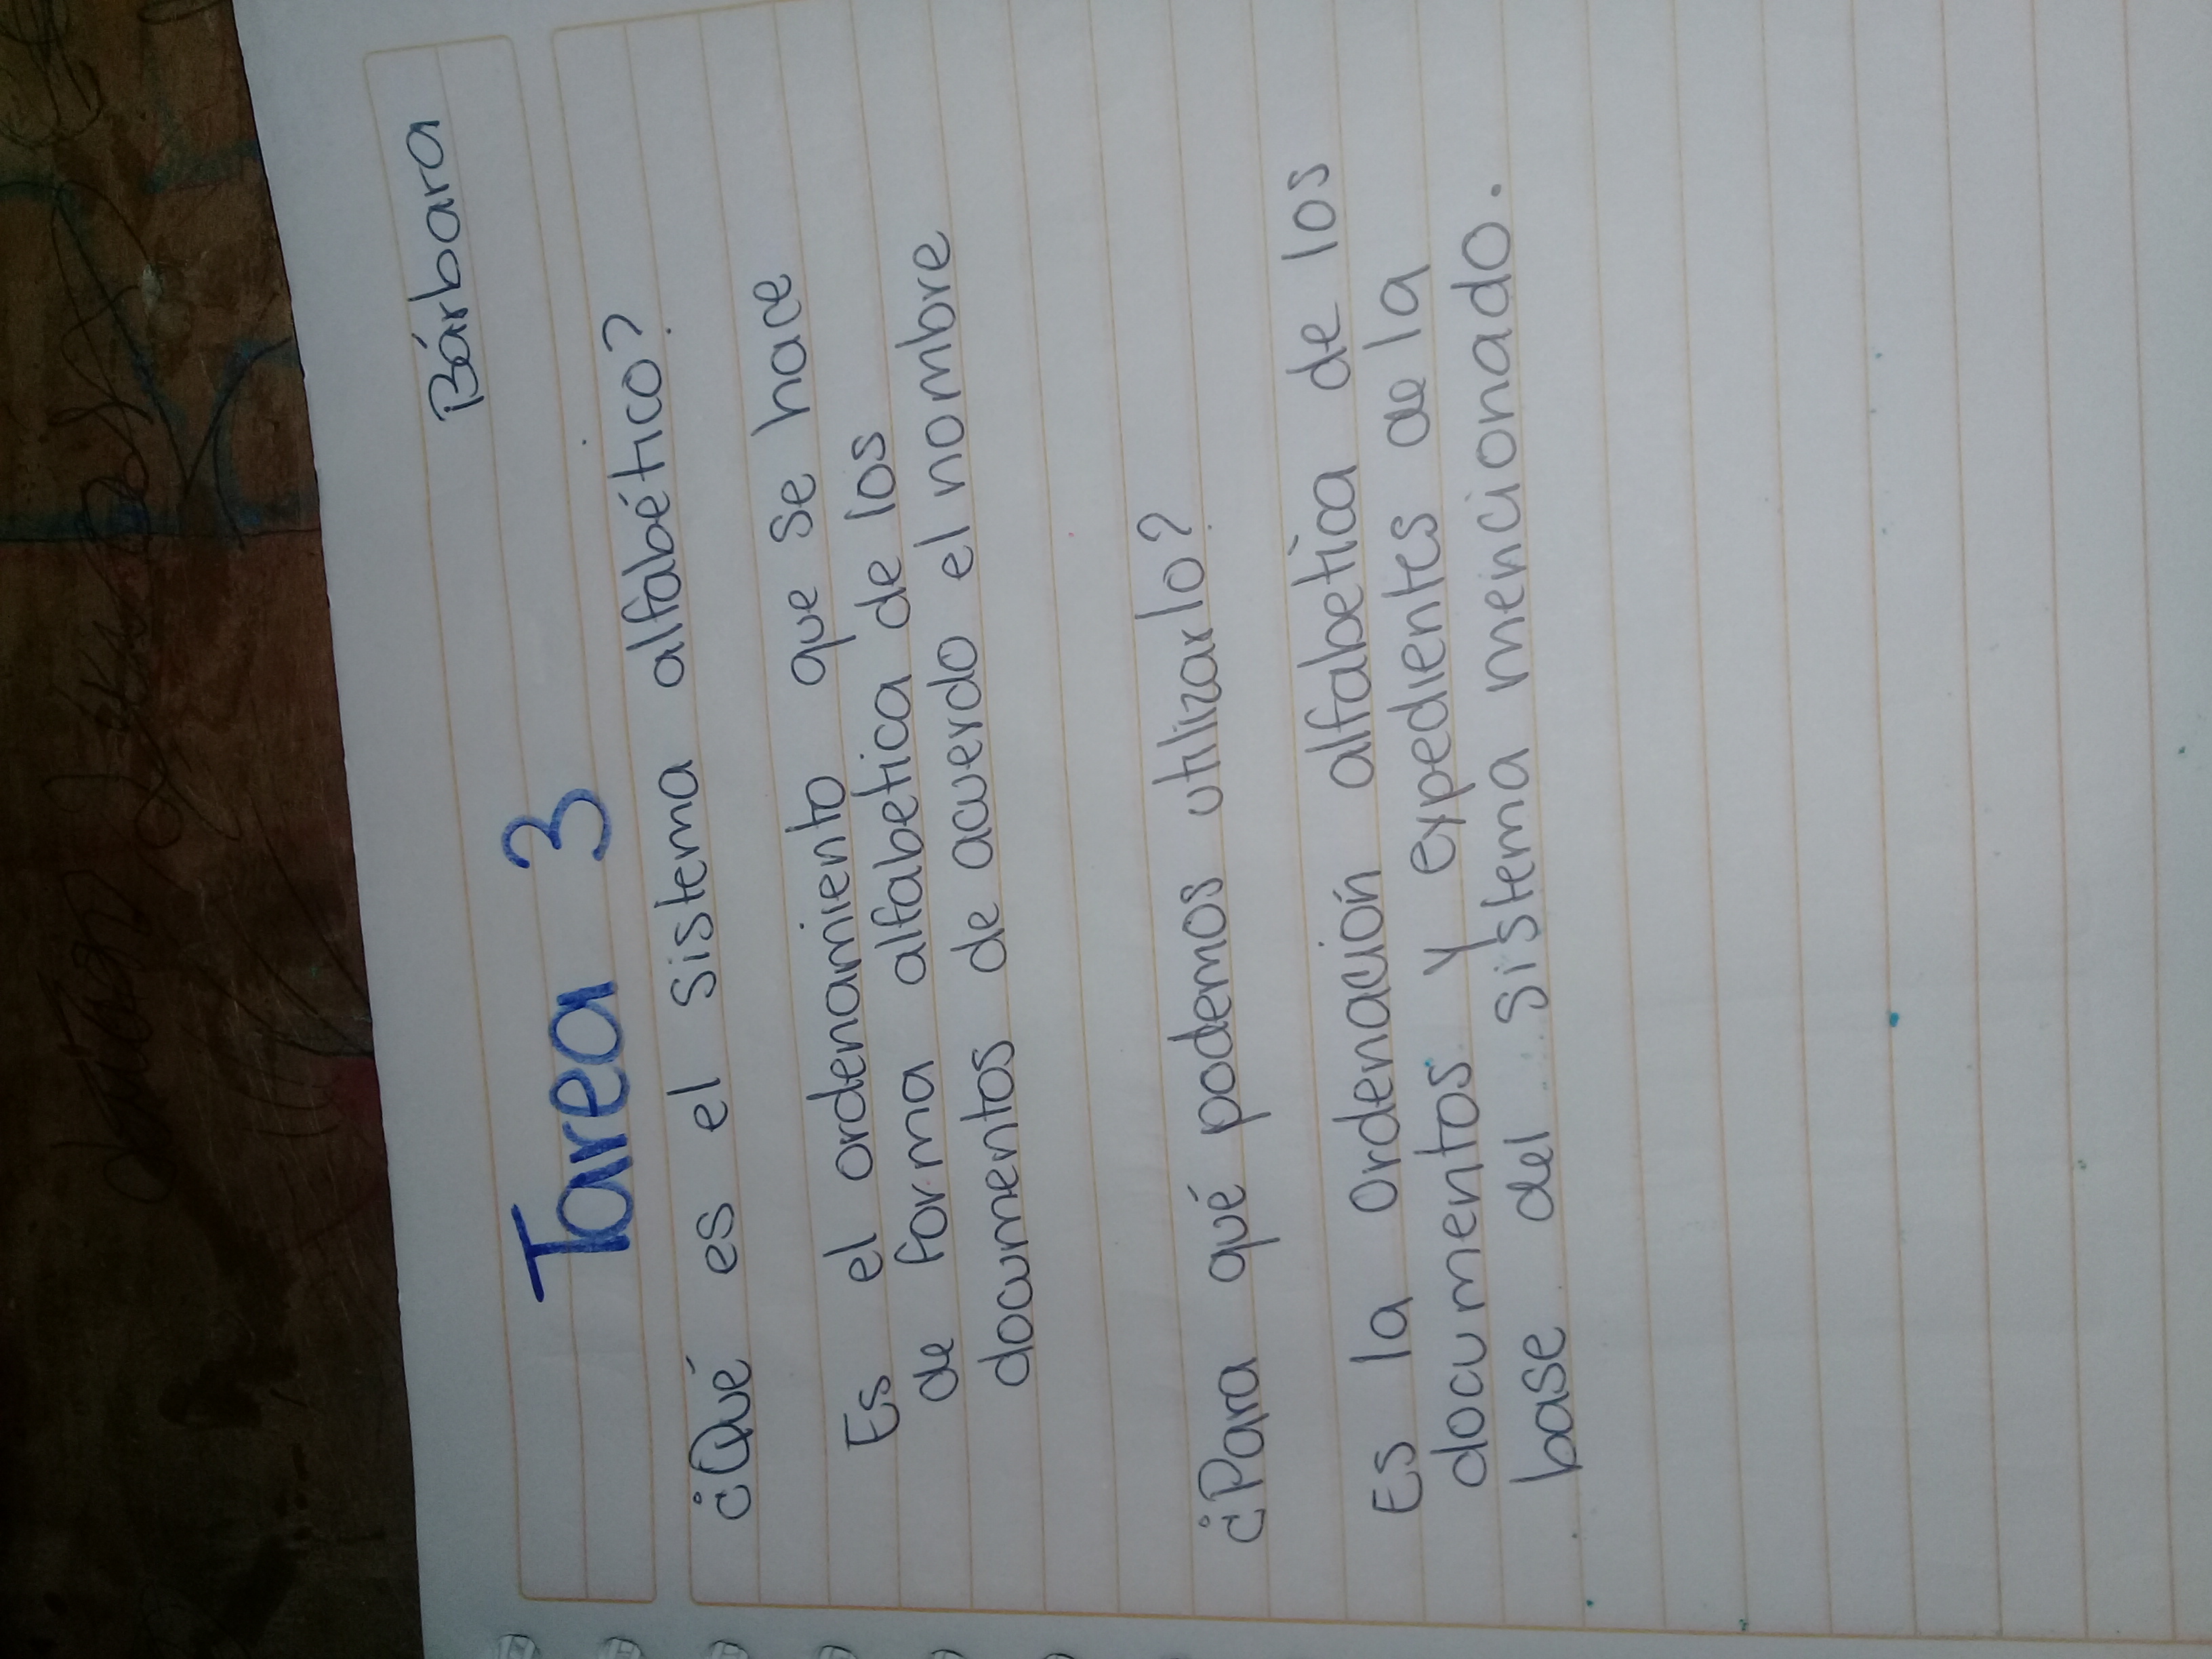 Bárbara
Tarea 3
¿Qué es el Sistema alfabético?
Es el ordenamiento que se hace
de forma alfabetica de los
documentos de acuerdo el nombre
¿Para qué podemos utilizarlo?
Es la Ordenación alfabetica de los
documentos y expedientes de la
base del sistema mencionado.